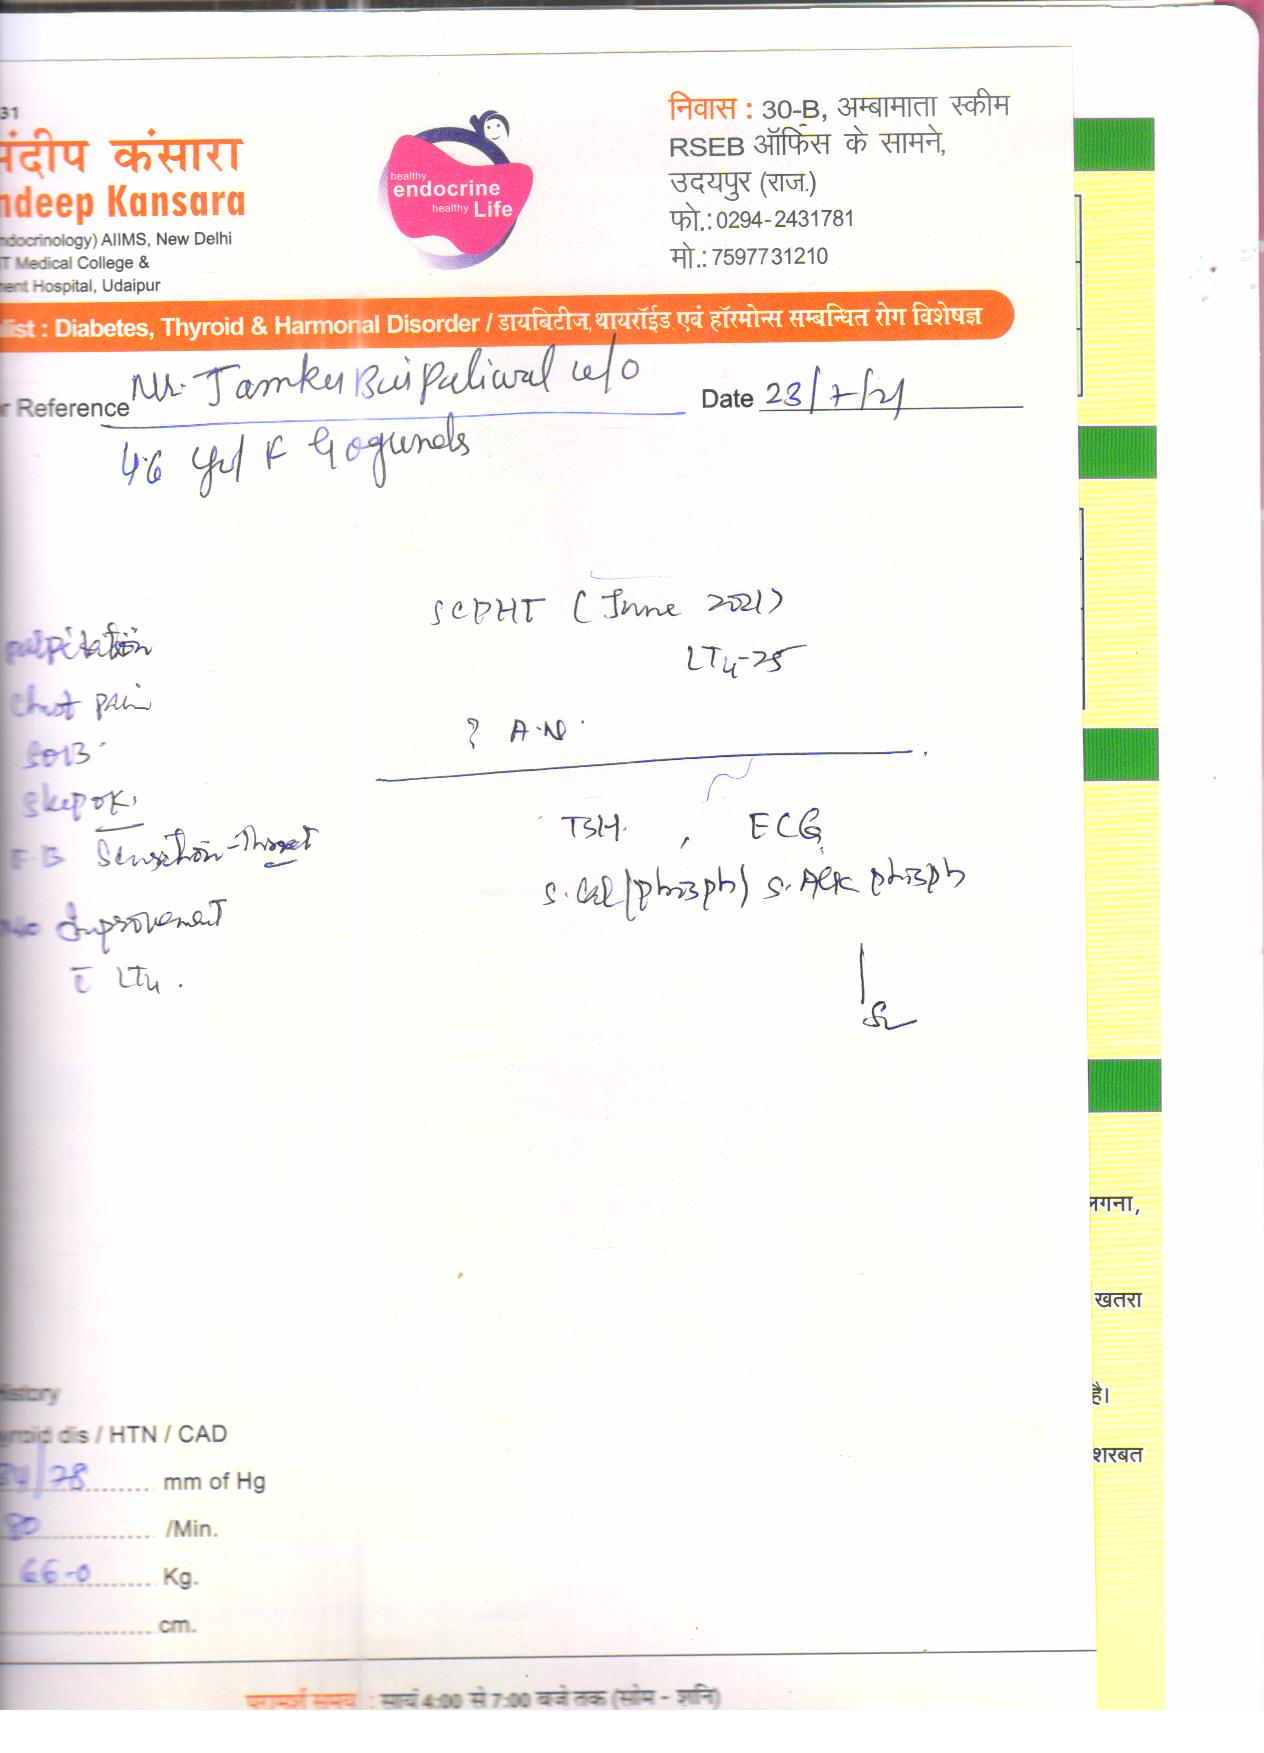 31
संदीप कंसारा
ndeep Kansara
ndocrinology) AIIMS, New Delhi
T Medical College &
ment Hospital, Udaipur
healthy
endocrine
healthy Life
निवास : 30-B, अम्बामाता स्कीम
RSEB ऑफिस के सामने,
उदयपुर (राज.)
फो.: 0294-2431781
मो.: 7597731210
list : Diabetes, Thyroid & Harmonal Disorder / डायबिटीज, थायरॉईड एवं हॉरमोन्स सम्बन्धित रोग विशेषज्ञ
r Reference Paliwal w/o
Date 23/7/21
46 yr/ F Gogunda
SCPHT (June 2021)
LT4-25
? A.N.
palpitation
Chest pain
SOB
Sleep ok.
F.B Sensation-Throat
No Improvement
c̄ LT4.
TSH. , ECG
S. Cal/phosph) S. Alk phosph
History
yroid dis / HTN / CAD
/78 mm of Hg
80 /Min.
66-0 Kg.
cm.
परामर्श समय : सायं 4:00 से 7:00 बजे तक (सोम - शनि)
लगना,
खतरा
है।
शरबत